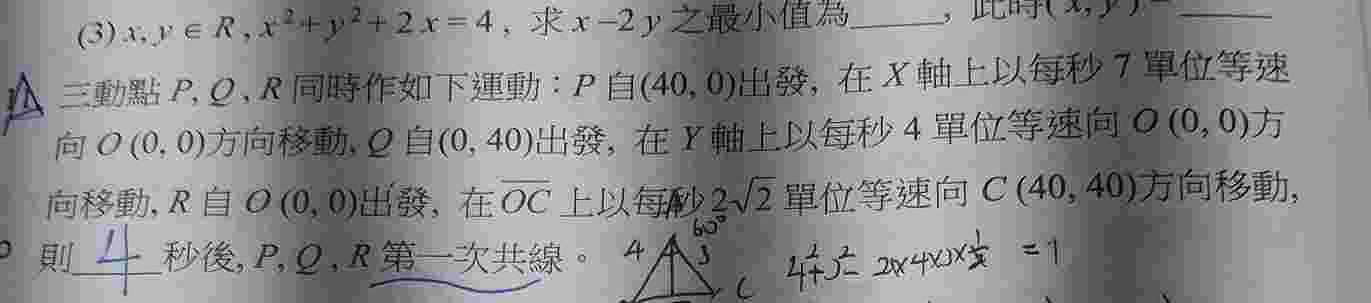 (3) x, y ∈ R, x²+y²+2x=4, 求 x−2y 之最小值為____, 此時(x, y)=____
三動點 P, Q, R 同時作如下運動：P 自(40, 0)出發, 在 X 軸上以每秒 7 單位等速
向 O (0, 0)方向移動, Q 自(0, 40)出發, 在 Y 軸上以每秒 4 單位等速向 O (0, 0)方
向移動, R 自 O (0, 0)出發, 在 OC 上以每秒 2√2 單位等速向 C (40, 40)方向移動,
則 4 秒後, P, Q, R 第一次共線。
60°
4
C
=1